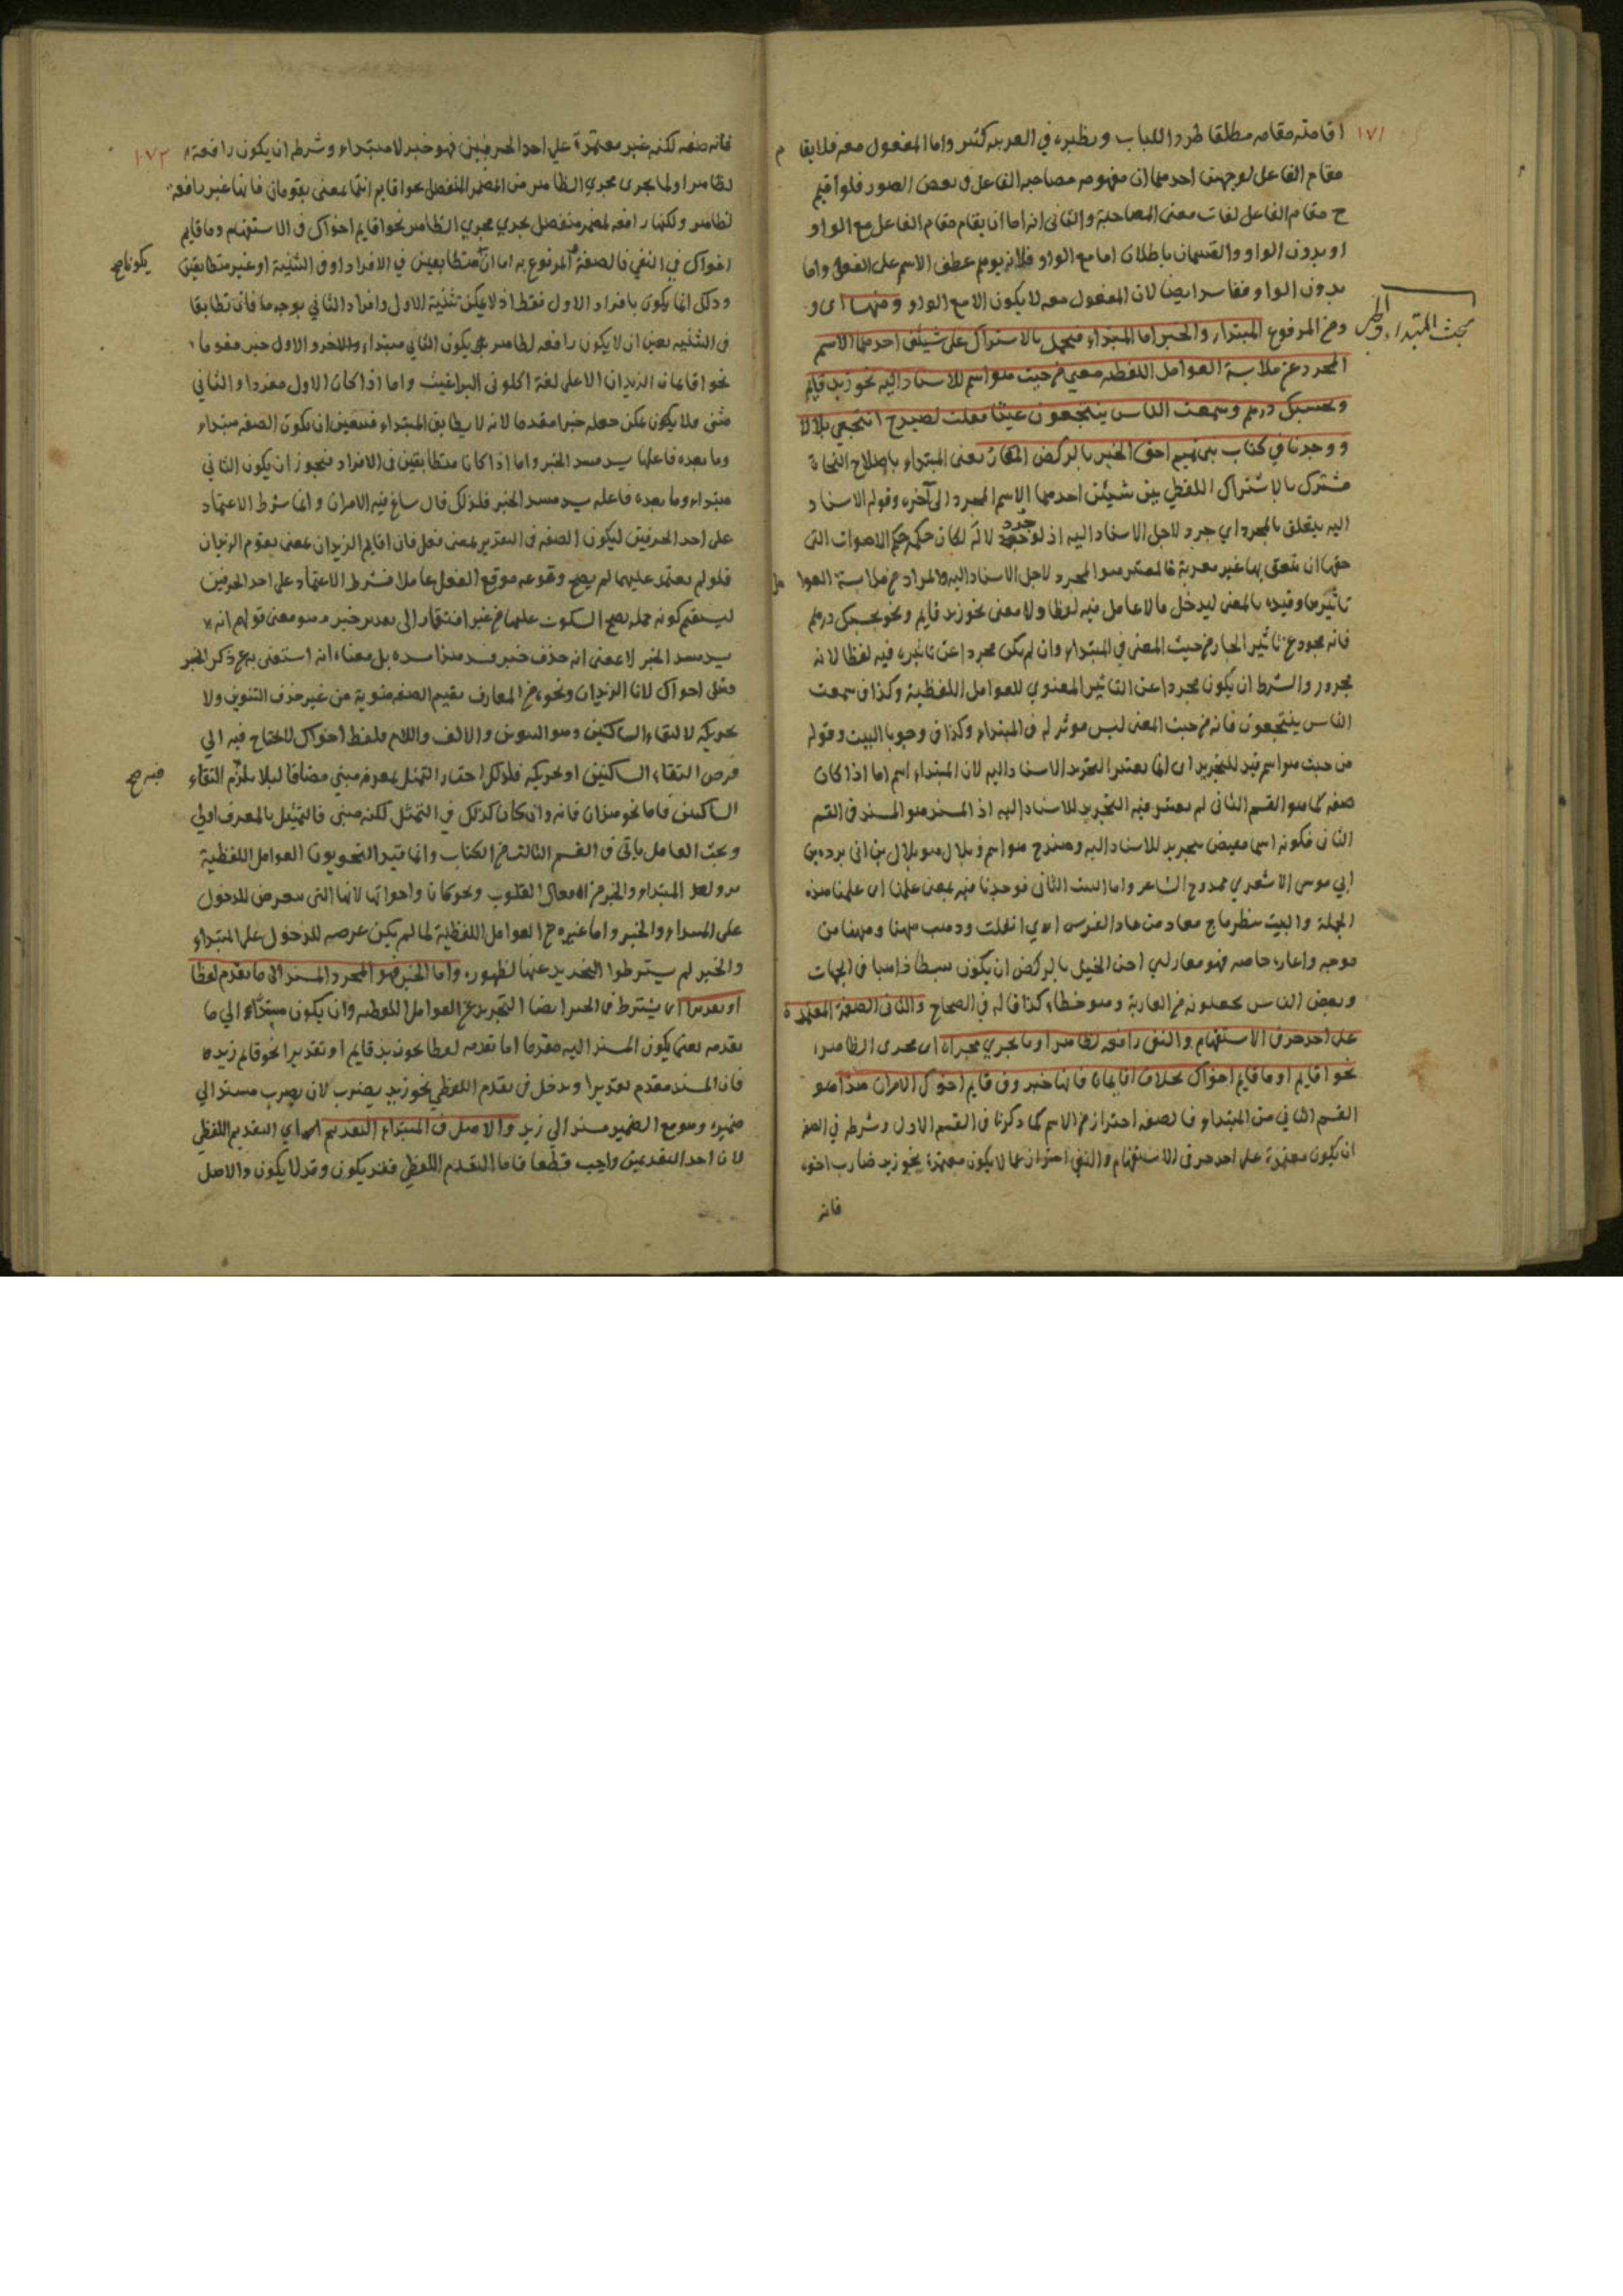 ١٧١
اقامته مقامه مطلقا طردا للباب ونظيره في العربية كثير واما المفعول معه فلا يقام
مقام الفاعل لوجهين احدهما ان مفهومه مصاحبة الفاعل في بعض الصور فلو اقيم
ح مقام الفاعل لفات معنى المصاحبة والثاني انه اما ان يقام مقام الفاعل مع الواو
او بدون الواو والقسمان باطلان اما مع الواو فلانه يوهم عطف الاسم على الفعل واما
بدون الواو ففاسد ايضا لان المفعول معه لا يكون الا مع الواو ومنها اى و
ومن المرفوع المبتداء والخبر اما المبتداء فيحمل بالاشتراك على شيئين احدهما الاسم
بحث المبتداء والخبر
المجرد عن ملابسة العوامل اللفظية معنى من حيث هو اسم للاسناد اليه نحو زيد قايم
وبحسبك درهم وسمعت الناس ينتجعون غيثا فقلت لصيدح انتجعي بلالا
ووجدنا في كتاب بني تميم احق الخيل بالركض المعار يعنى المبتداء باصلاح النحاة
مشترك بالاشتراك اللفظي بين شيئين احدهما الاسم المجرد الى آخره وقوله الاسناد
اليه يتعلق بالمجرد اي جرد لاجل الاسناد اليه اذ لو جرد لا له لكان حكمه حكم الاصوات التى
حقها ان ينعق بها غير معربة فالمعتبر هو المجرد لاجل الاسناد اليه والمراد من ملابسة العوامل
تاثيرها وقيده بالمعنى ليدخل ما لا عامل فيه لفظا ولا معنى نحو زيد قايم ونحو بحسبك درهم
فانه مجرد عن تاثير الجار من حيث المعنى في المبتداء وان لم يكن مجردا عن تاثيره فيه لفظا لانه
مجرور والشرط ان يكون مجردا عن التاثير المعنوي للعوامل اللفظية وكذا في سمعت
الناس ينتجعون فانه من حيث المعنى ليس موثر له في المبتداء وكذا في وجوبا البيت وقوله
من حيث هو اسم قيد للتجريد اى انما يعتبر التجريد الاسناد اليه لان المبتداء اسم اما اذا كان
صفة كما هو القسم الثانى لم يعتبر فيه التجريد للاسناد اليه اذ المسند هو المسند في القسم
الثانى فكونه اسما مقيض بتجريد للاسناد اليه وصيدح هو اسم وبلال هو بلال بن ابى برده بن
ابي موسى الاشعري ممدوح الشاعر واما البيت الثانى فوجدنا فيه بمعنى علمنا اى علمنا هذه
الجملة والبيت لطرماح معار من عار الفرس اى انفلت وذهب ههنا وههنا من
موجه واعاره صاحبه فهو معار اي احق الخيل بالركض ان يكون سبطا ذاهبا في الجهات
وبعض الناس يجعلونه من العارية وهو خطاء كذا قاله في الصحاح والثانى الصفة المعتمدة
على احد حرفى الاستفهام والنفى رافعة لظاهر او ما يجري مجراه اى مجرى الظاهر
نحو اقايم او ما قايم اخواك بخلاف اقايمان فانها خبر وفى قايم اخوك الامران هذا هو
القسم الثاني من المبتداء فالصفة احتراز من الاسم كما ذكرنا في القسم الاول وشرطه في الصفة
ان يكون معتمدة على احد حرفى الاستفهام والنفى احترازا عما لا يكون معتمدة نحو زيد ضارب اخوه
فانه
١٧٢
فانه صفة لكنه غير معتمدة على احد الحرفين فهو خبر لا مبتداء وشرطه ان يكون رافعة
لظاهر او لما يجرى مجرى الظاهر من المضمر المنفصل نحو اقايم انتما بمعنى يقومان فانها غير رافعة
لظاهر ولكنها رافعة لمضمر منفصل يجري مجري الظاهر نحو اقايم اخواك في الاستفهام وما قايم
اخواك في النفي فالصفة المرفوع به اما ان متطابقين في الافراد او في التثنية او غير متطابقين
يكونا صح
وذلك انما يكون بافراد الاول فقط اذ لا يمكن تثنية الاول وافراد الثاني بوجه ما فان تطابقا
في التثنية يعين ان لا يكون رافعة لظاهر بل يكون الثاني مبتداء والاخر والاول خبر مقدما
نحو اقايمان الزيدان الا على لغة اكلونى البراغيث واما اذا كان الاول مفردا والثاني
مثنى فلا يمكن جعله خبرا مقدما لانه لا يطابق المبتداء فتعين ان يكون الصفة مبتداء
وما بعده فاعلها يسد مسد الخبر واما اذا كانا متطابقين في الافراد فيجوز ان يكون الثاني
مبتداء وما بعده فاعله يسد مسد الخبر فلذلك قال ساغ فيه الامران وانما شرط الاعتماد
على احد الحرفين ليكون الصفة في التقدير بمعنى فعل فان اقايم الزيدان بمعنى يقوم الزيدان
فلو لم يعتمد عليهما لم يصح وقوعه موقع الفعل عاملا فشرط الاعتماد على احد الحرفين
ليستقيم كونه جملة يصح السكوت عليها من غير افتقار الى تقدير خبر وهو معنى قولهم انه
يسد مسد الخبر لا بمعنى انه حذف خبر فسد هذا مسده بل معناه انه استغنى به عن ذكر الخبر
ومثل اخواك لا نا الزيدان ونحوه من المعارف بقيم الصفة منوية من غير حذف التنوين ولا
تحريكه لالتقاء الساكنين وهو التنوين والالف واللام فلفظ اخواك لا يحتاج فيه الي
فرض التقاء الساكنين او تحريكه فلذلك اختار التمثيل بمعرفة مبني مضافا ليلا يلزم التقاء
فيه صح
الساكنين فاما نحو هذان فانه وان كان كذلك في التمثيل لكنه مبنى فالتمثيل بالمعرف اولى
وبحث العامل ياتى في القسم الثالث من الكتاب وانما قيد النحويون العوامل اللفظية
المبتداء والخبر من افعال القلوب ونحو كان واخواتها لانها التى تتعرض للدخول
على المبتداء والخبر واما غيره من العوامل اللفظية لما لم يكن عرضة للدخول على المبتداء
والخبر لم يشترطوا التجريد عنها لظهوره واما الخبر فهو المجرد المسند الى ما تقدم لفظا
او تقديرا اى يشترط في الخبر ايضا التجريد عن العوامل اللفظية وان يكون مسندا الي ما
تقدمه يعنى يكون المسند اليه مقدما اما تقدمه لفظا نحو زيد قايم او تقديرا نحو قايم زيد
فان المسند مقدم تقديرا ويدخل في تقدم اللفظي نحو زيد يضرب لان يضرب مسند الي
ضميره وهو مع الضمير مسند الي زيد والاصل في المبتداء التقديم اي التقديم اللفظي
لان احد التقديمين واجب قطعا فاما التقديم اللفظي فقد يكون وقد لا يكون والاصل